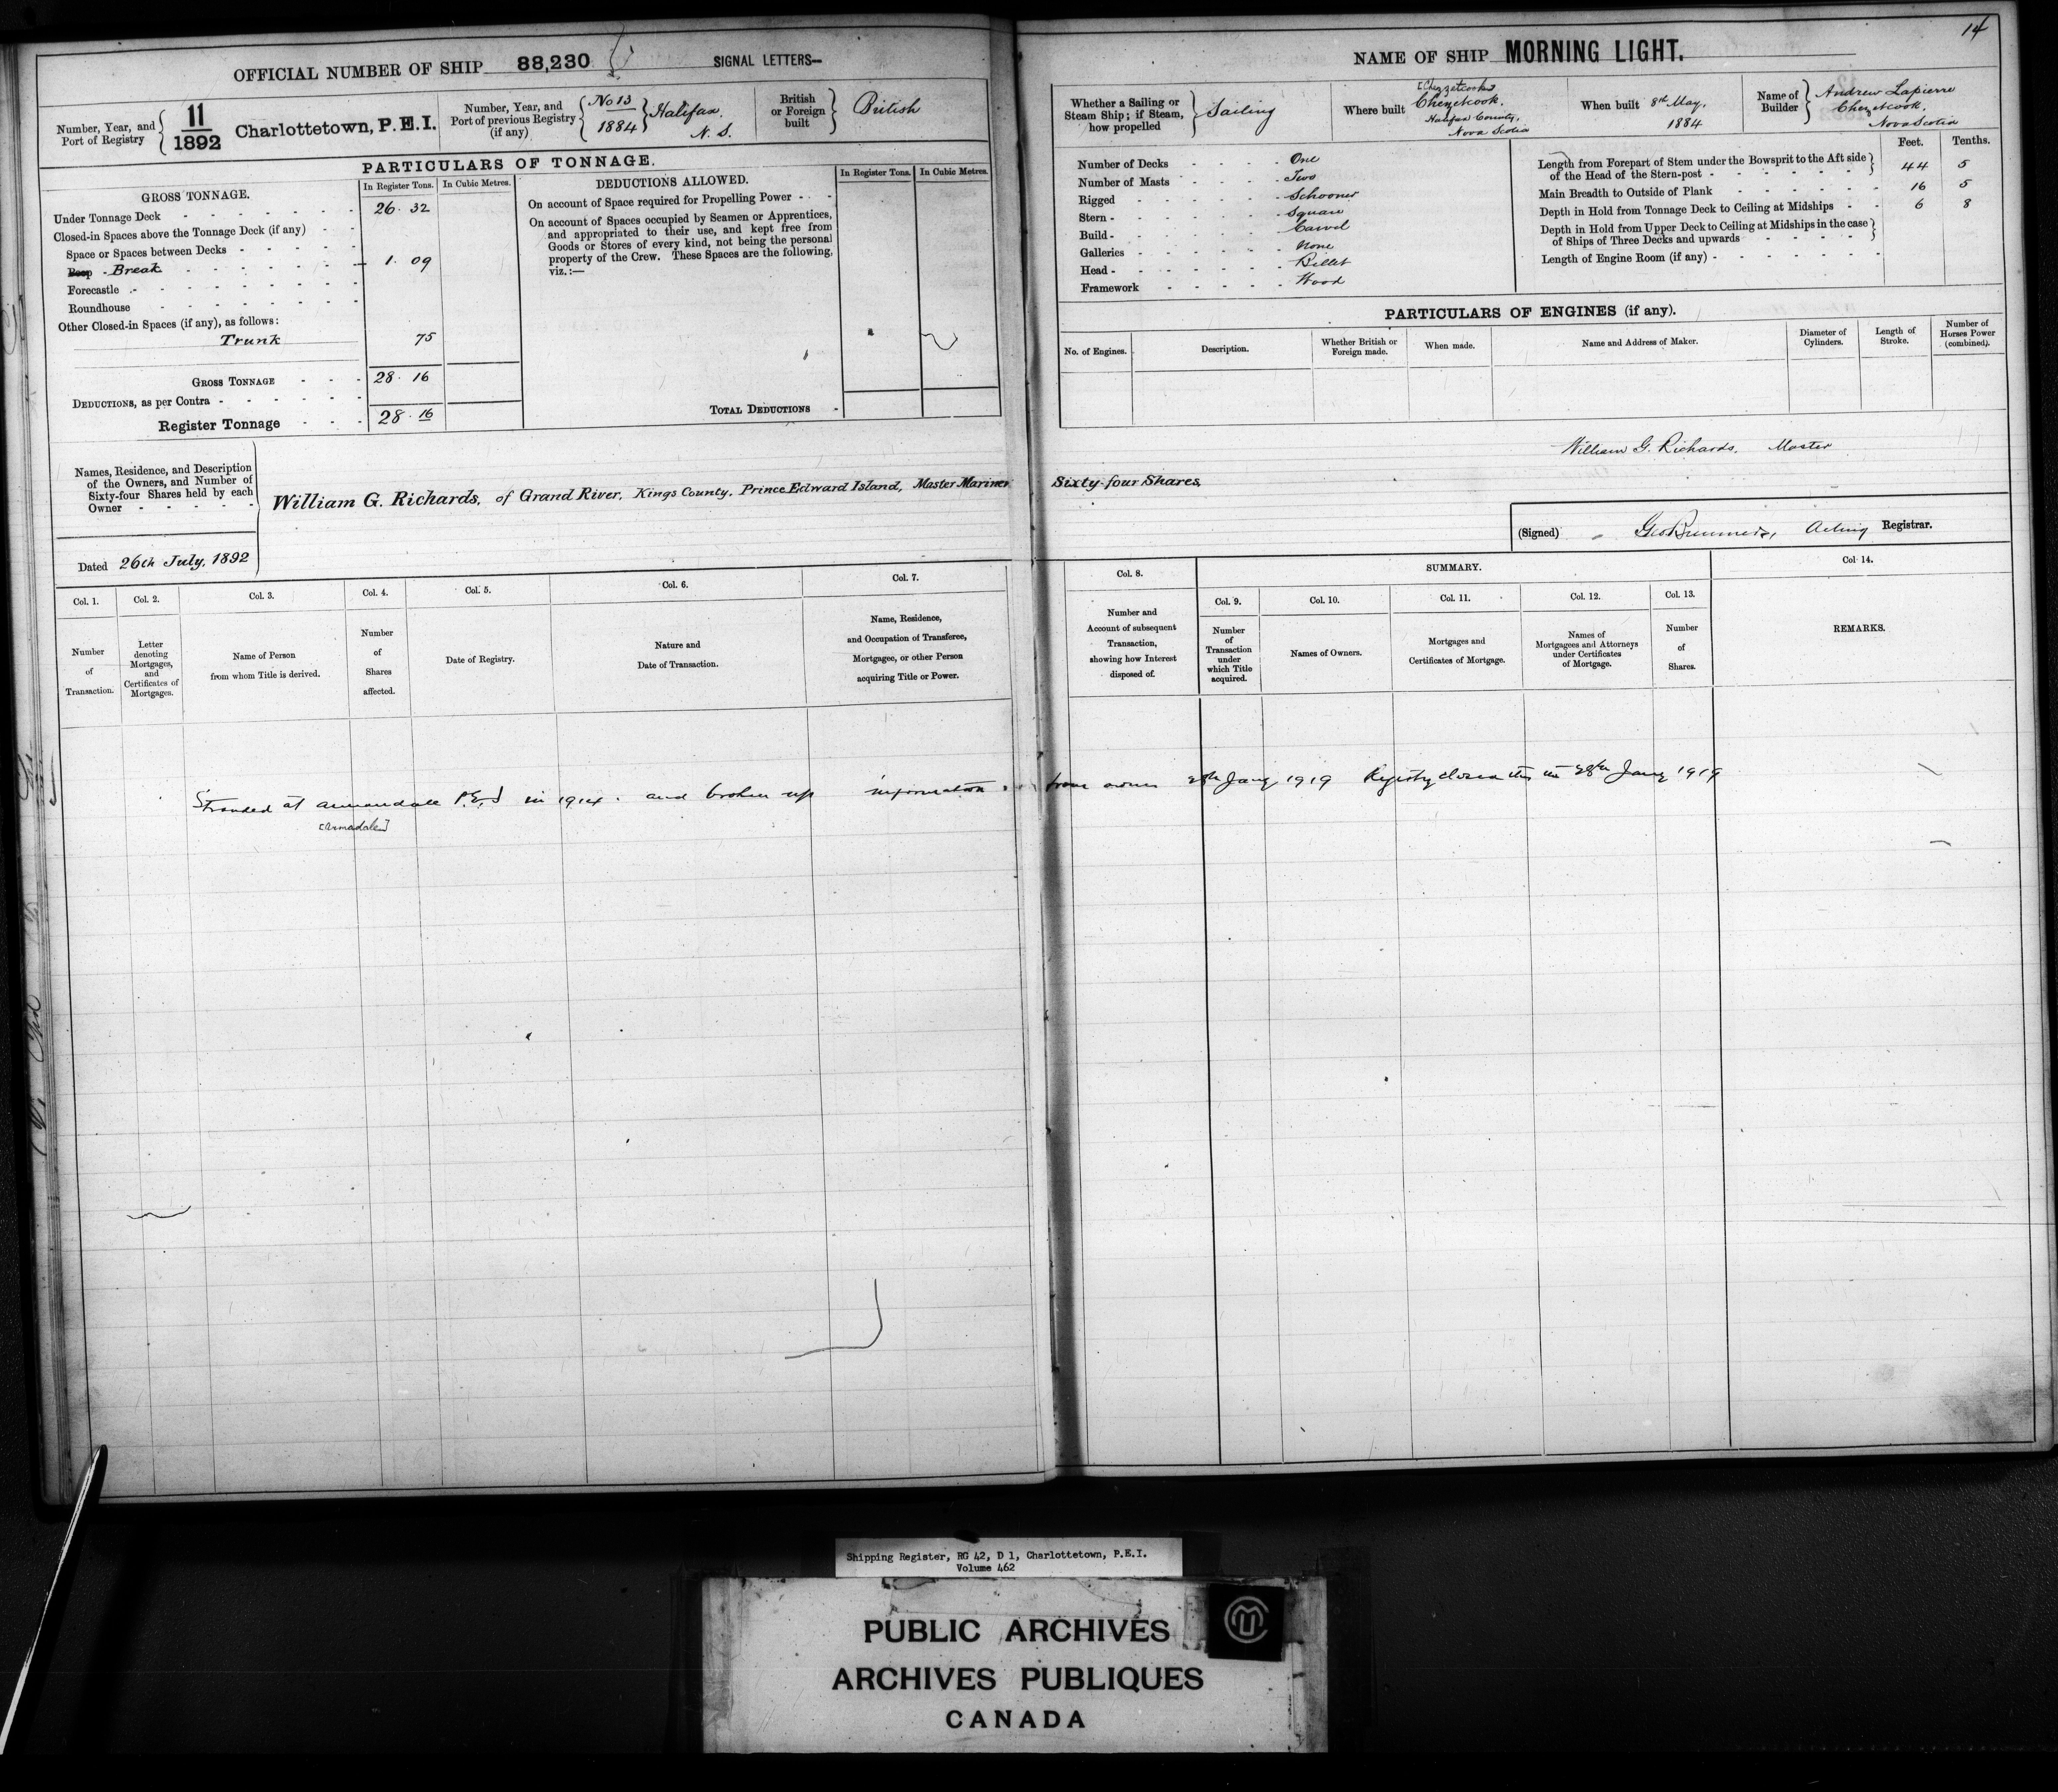 14
OFFICIAL NUMBER OF SHIP 88,230 SIGNAL LETTERS—
Number, Year, and Port of Registry 11/1892 Charlottetown, P.E.I.
Number, Year, and Port of previous Registry (if any) No 13 1884 Halifax, N. S.
British or Foreign built British
PARTICULARS OF TONNAGE.
GROSS TONNAGE. In Register Tons. In Cubic Metres.
Under Tonnage Deck 26. 32
Closed-in Spaces above the Tonnage Deck (if any)
Space or Spaces between Decks
Poop Break 1. 09
Forecastle
Roundhouse
Other Closed-in Spaces (if any), as follows:
Trunk 75
GROSS TONNAGE 28. 16
DEDUCTIONS, as per Contra
Register Tonnage 28. 16
DEDUCTIONS ALLOWED. In Register Tons. In Cubic Metres.
On account of Space required for Propelling Power
On account of Spaces occupied by Seamen or Apprentices,
and appropriated to their use, and kept free from
Goods or Stores of every kind, not being the personal
property of the Crew. These Spaces are the following,
viz.:—
TOTAL DEDUCTIONS
Names, Residence, and Description
of the Owners, and Number of
Sixty-four Shares held by each
Owner
William G. Richards, of Grand River, Kings County, Prince Edward Island, Master Mariner Sixty-four Shares,
Dated 26th July, 1892
NAME OF SHIP MORNING LIGHT.
Whether a Sailing or Steam Ship; if Steam, how propelled Sailing
Where built [Chezzetcook] Chezetcook, Halifax County, Nova Scotia
When built 8th May, 1884
Name of Builder Andrew Lapierre Chezetcook, Nova Scotia
Number of Decks One
Number of Masts Two
Rigged Schooner
Stern Square
Build Carvel
Galleries None
Head Billet
Framework Wood
Feet. Tenths.
Length from Forepart of Stem under the Bowsprit to the Aft side
of the Head of the Stern-post 44 5
Main Breadth to Outside of Plank 16 5
Depth in Hold from Tonnage Deck to Ceiling at Midships 6 8
Depth in Hold from Upper Deck to Ceiling at Midships in the case
of Ships of Three Decks and upwards
Length of Engine Room (if any)
PARTICULARS OF ENGINES (if any).
No. of Engines. Description. Whether British or Foreign made. When made. Name and Address of Maker. Diameter of Cylinders. Length of Stroke. Number of Horses Power (combined).
William G. Richards, Master
(Signed) Acting Registrar.
Col. 1. Col. 2. Col. 3. Col. 4. Col. 5. Col. 6. Col. 7.
Number of Transaction.
Letter denoting Mortgages, and Certificates of Mortgages.
Name of Person from whom Title is derived.
Number of Shares affected.
Date of Registry.
Nature and Date of Transaction.
Name, Residence, and Occupation of Transferee, Mortgagee, or other Person acquiring Title or Power.
Col. 8. SUMMARY. Col. 14.
Col. 9. Col. 10. Col. 11. Col. 12. Col. 13.
Number and Account of subsequent Transaction, showing how Interest disposed of.
Number of Transaction under which Title acquired.
Names of Owners.
Mortgages and Certificates of Mortgage.
Names of Mortgagees and Attorneys under Certificates of Mortgage.
Number of Shares.
REMARKS.
Stranded at Annandale P.E.I in 1914. and broken up information from owner 28th Jany 1919 Registry closed this 28th Jany 1919
[Armadale]
Shipping Register, RG 42, D 1, Charlottetown, P.E.I.
Volume 462
PUBLIC ARCHIVES
ARCHIVES PUBLIQUES
CANADA